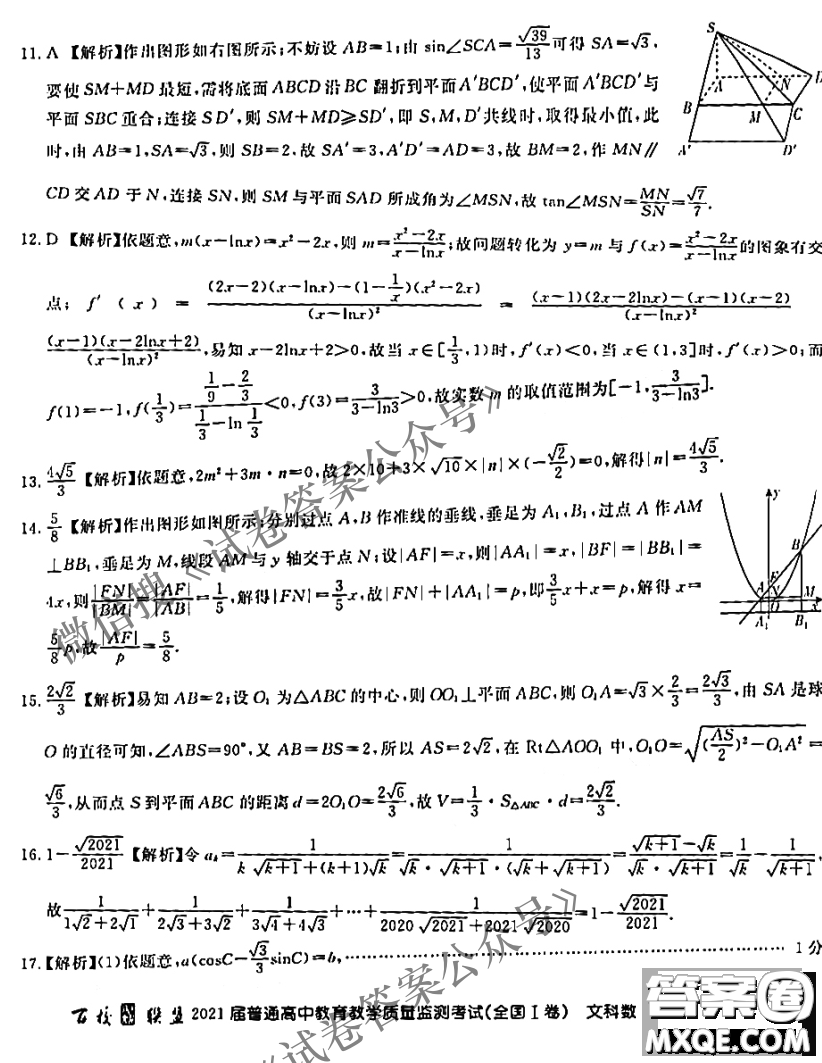 11. A 【解析】作出图形如右图所示;不妨设 AB=1;由 sin∠SCA=√39/13 可得 SA=√3,
要使 SM+MD 最短,需将底面 ABCD 沿 BC 翻折到平面 A'BCD',使平面 A'BCD' 与
平面 SBC 重合;连接 SD',则 SM+MD≥SD',即 S,M,D' 共线时,取得最小值,此
时,由 AB=1,SA=√3,则 SB=2,故 SA'=3,A'D'=AD=3,故 BM=2,作 MN∥
CD 交 AD 于 N,连接 SN,则 SM 与平面 SAD 所成角为∠MSN,故 tan∠MSN=MN/SN=√7/7.
S
A
N
D
B
M
C
A'
D'
12. D 【解析】依题意,m(x-lnx)=x²-2x,则 m=(x²-2x)/(x-lnx);故问题转化为 y=m 与 f(x)=(x²-2x)/(x-lnx)的图象有交
点; f'(x) = ((2x-2)(x-lnx)-(1-1/x)(x²-2x))/(x-lnx)² = ((x-1)(2x-2lnx)-(x-1)(x-2))/(x-lnx)²
((x-1)(x-2lnx+2))/(x-lnx)²,易知 x-2lnx+2>0,故当 x∈[1/3,1)时,f'(x)<0,当 x∈(1,3]时,f'(x)>0;而
f(1)=-1,f(1/3)=(1/9-2/3)/(1/3-ln 1/3)<0,f(3)=3/(3-ln3)>0,故实数 m 的取值范围为[-1,3/(3-ln3)].
13. 4√5/3 【解析】依题意,2m²+3m·n=0,故 2×10+3×√10×|n|×(-√2/2)=0,解得|n|=4√5/3.
14. 5/8 【解析】作出图形如图所示;分别过点 A,B 作准线的垂线,垂足为 A₁,B₁,过点 A 作 AM
⊥BB₁,垂足为 M,线段 AM 与 y 轴交于点 N;设|AF|=x,则|AA₁|=x,|BF|=|BB₁|=
4x,则|FN|/|BM|=|AF|/|AB|=1/5,解得|FN|=3/5x,故|FN|+|AA₁|=p,即3/5x+x=p,解得 x=
5/8p,故|AF|/p=5/8.
y
B
F
A
N
M
O
x
A₁
B₁
15. 2√2/3 【解析】易知 AB=2;设 O₁ 为△ABC 的中心,则 OO₁⊥平面 ABC,则 O₁A=√3×2/3=2√3/3,由 SA 是球
O 的直径可知,∠ABS=90°,又 AB=BS=2,所以 AS=2√2,在 Rt△AOO₁ 中,O₁O=√((AS/2)²-O₁A²)=
√6/3,从而点 S 到平面 ABC 的距离 d=2O₁O=2√6/3,故 V=1/3·S△ABC·d=2√2/3.
16. 1-√2021/2021 【解析】令 aₖ=1/(k√(k+1)+(k+1)√k)=1/(√k·√(k+1)·(√k+√(k+1)))=(√(k+1)-√k)/(√k·√(k+1))=1/√k-1/√(k+1),
故1/(1√2+2√1)+1/(2√3+3√2)+1/(3√4+4√3)+…+1/(2020√2021+2021√2020)=1-√2021/2021.
17.【解析】(1)依题意,a(cosC-√3/3 sinC)=b,………………………… 1分
百校 联盟 2021 届普通高中教育教学质量监测考试(全国Ⅰ卷) 文科数
微信搜《试卷答案公众号》
《试卷答案公众号》
答案圈
MXQE.COM